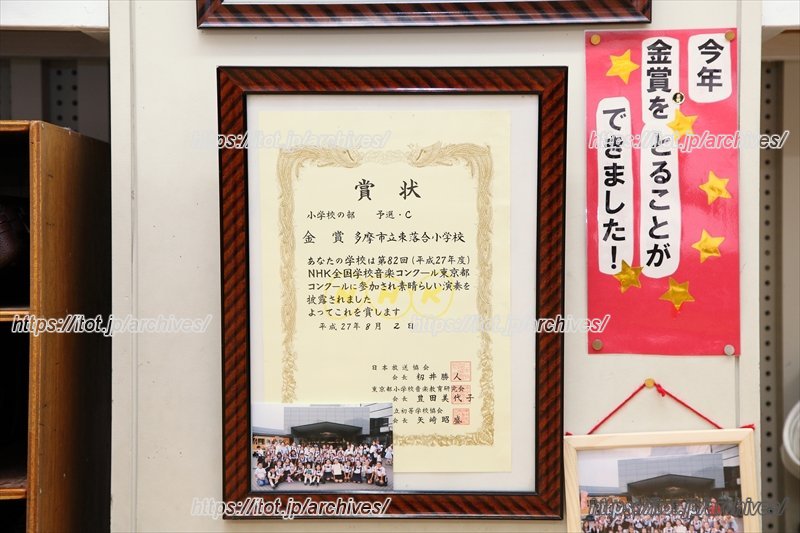 賞 状
小学校の部 予選・C
金 賞 多摩市立東落合小学校
あなたの学校は第82回(平成27年度)
NHK全国学校音楽コンクール東京都
コンクールに参加され素晴らしい演奏を
披露されました
よってこれを賞します
平成27年8月 2日
日本放送協会
会長 籾井勝人
東京都小学校音楽教育研究会
会長 豊田美代子
立初等学校協会
会長 矢崎昭盛
今年
金賞を とることが
できました!
https://itot.jp/archives/
https://itot.jp/archives/
https://itot.jp/archives/
https://itot.jp/archives/
https://itot.jp/archives/
https://itot.jp/archives/